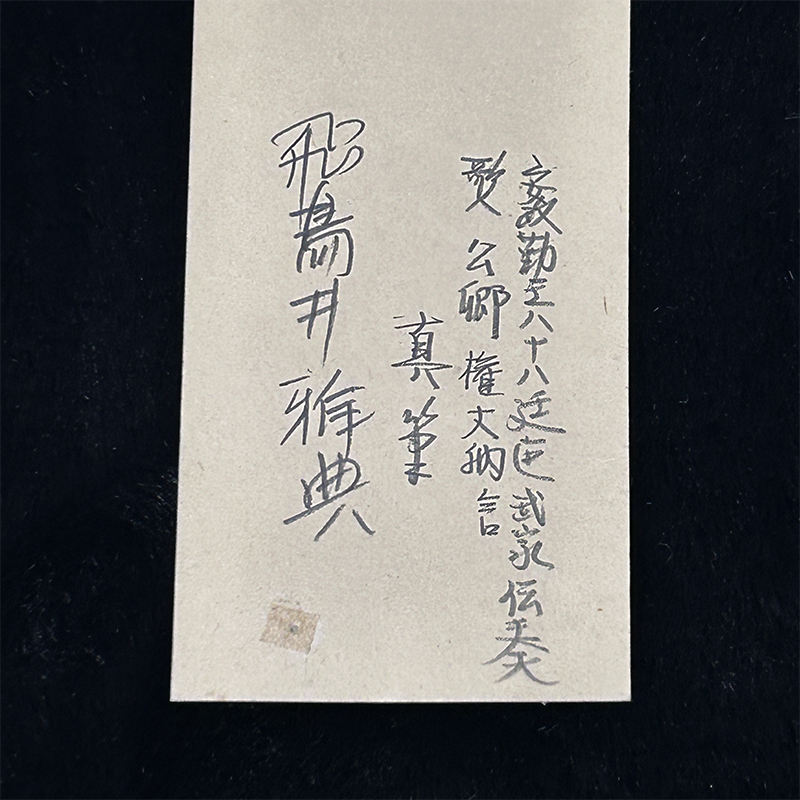 安政勤王八十八廷臣 武家伝奏
歌人 公卿 權大納言
真筆
飛鳥井雅典